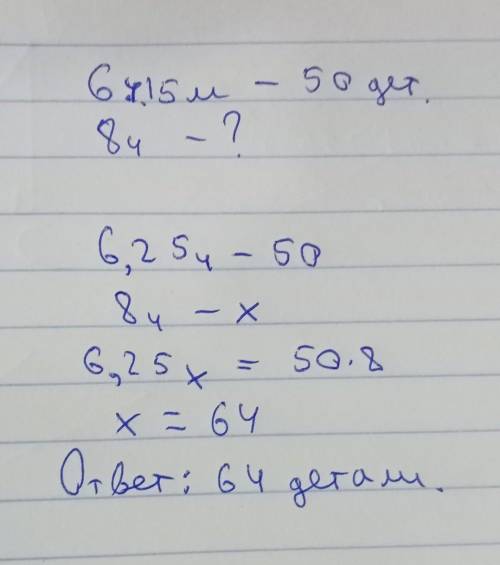 6ч15м - 50 дет.
8ч - ?
6,25ч - 50
8ч - x
6,25x = 50·8
x = 64
Ответ: 64 детали.